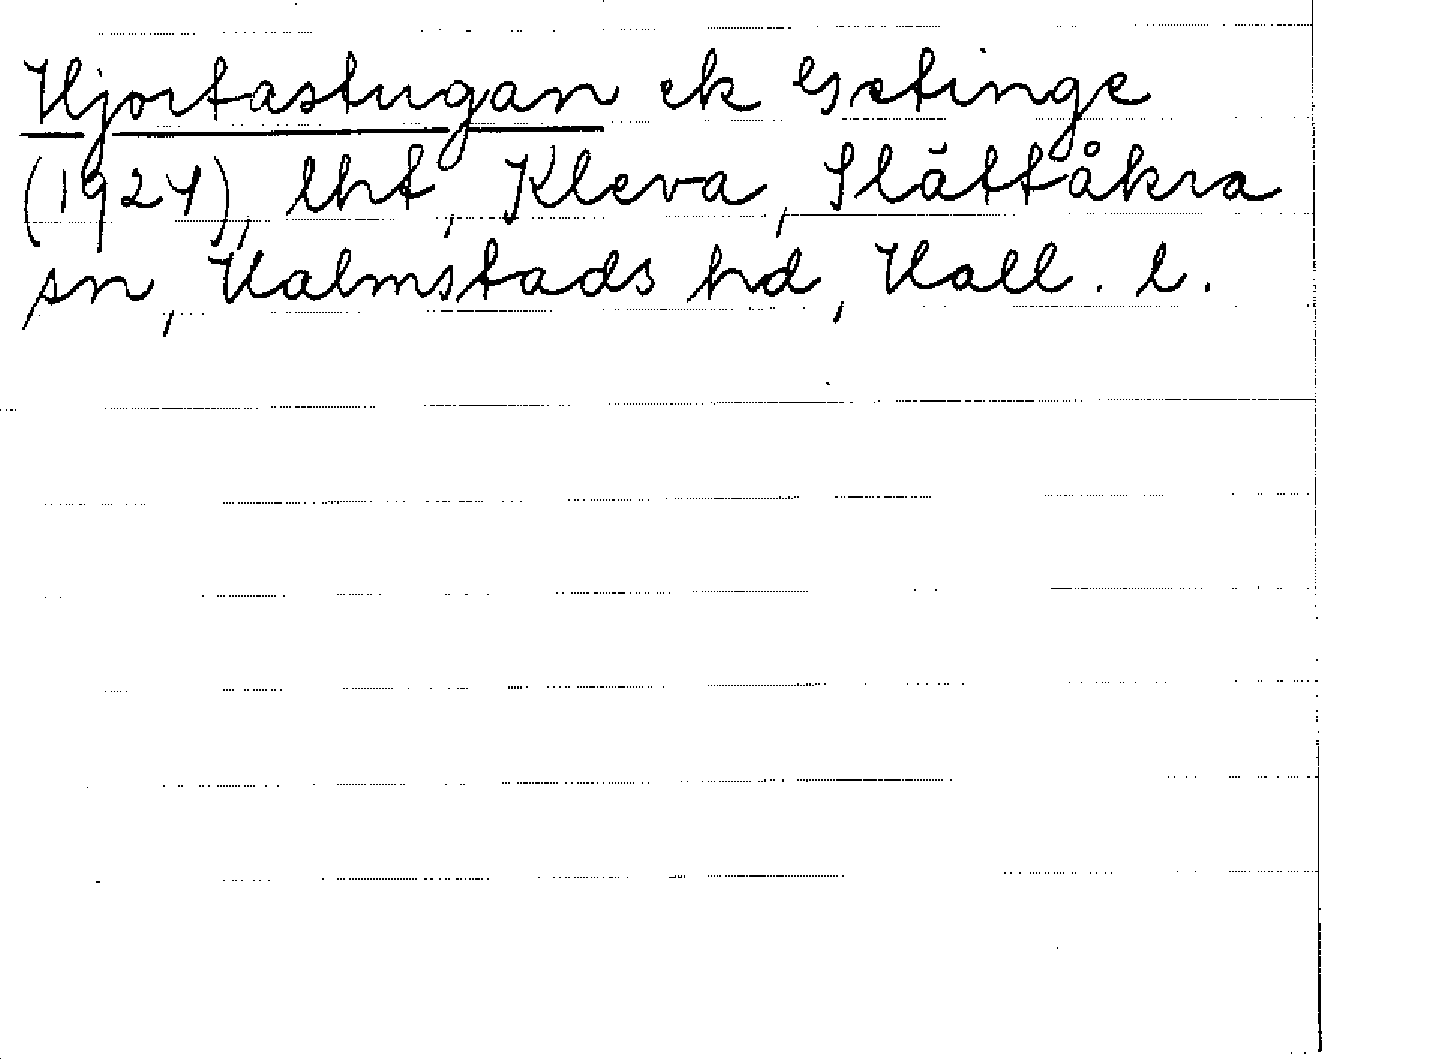 Hjortastugan ek Getinge
(1924), lht, Kleva, Slättåkra
sn, Halmstads hd, Hall. l.